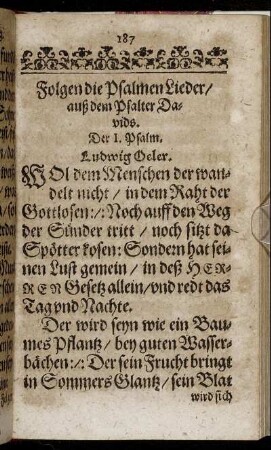 187
Folgen die Psalmen Lieder/
auß dem Psalter Da-
vids.
Der I. Psalm.
Ludwig Oeler.
WOl dem Menschen der wan-
delt nicht / in dem Raht der
Gottlosen:/: Noch auff den Weg
der Sünder tritt / noch sitzt da
Spötter kosen: Sondern hat sei-
nen Lust gemein / in deß HER-
REN Gesetz allein/ vnd redt das
Tag vnd Nachte.
Der wird seyn wie ein Bau-
mes Pflantz / bey guten Wasser-
bächen:/: Der sein Frucht bringt
in Sommers Glantz / sein Blat
wird sich